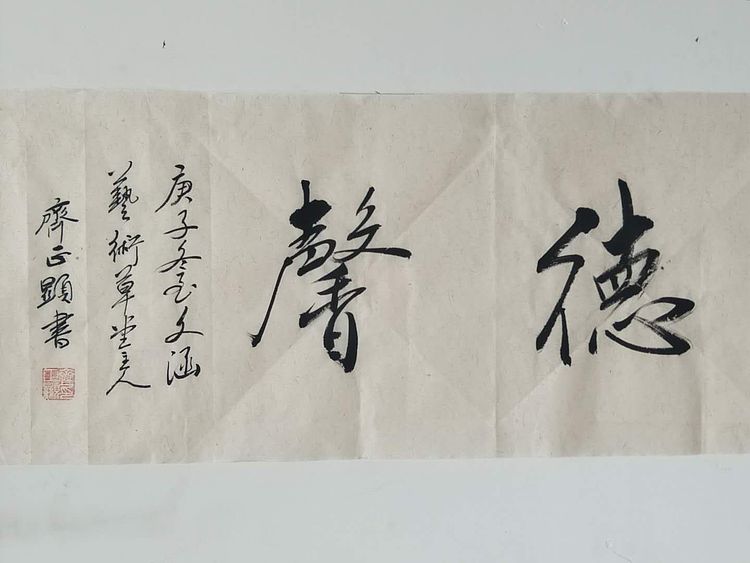 德馨
庚子冬月文涵
藝術草堂主人
齊正顕書